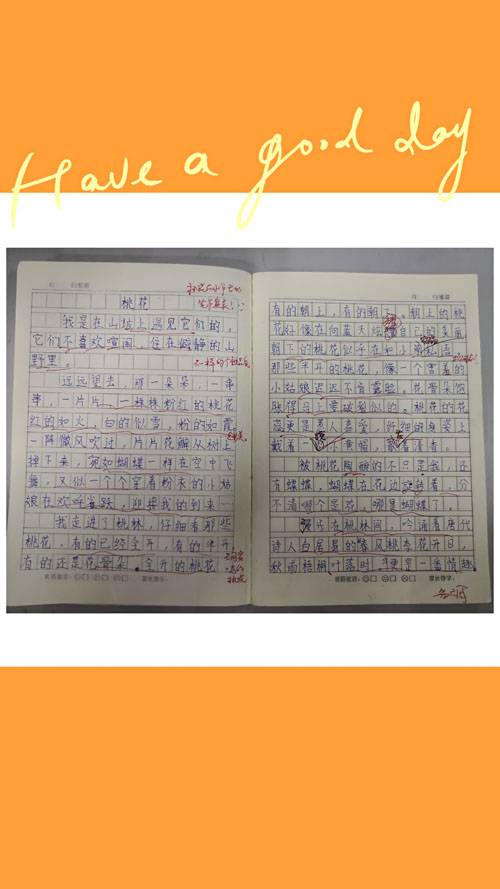 Have a good day
桃花
我是在山坡上遇见它们的，
它们不喜欢喧闹，住在僻静的山
野里。
远远望去，那一朵朵，一串
串，一片片，一株株粉红的桃花
红的如火，白的似雪，粉的如霞
一阵微风吹过，片片花瓣从树上
掉下来，宛如蝴蝶一样在空中飞
舞，又似一个个穿着粉衣的小姑
娘在欢呼雀跃，迎接我的到来
我走进了桃林，仔细看那些
桃花，有的已经全开，有的半开，
有的还是花骨朵。全开的桃花
有的朝上，有的朝。朝上的桃
花好像在向蓝天自己的美丽
朝下的桃花似乎在和小草
那些半开的桃花，像一个害羞的
小姑娘迟迟不肯露脸，花骨朵饱
胀得马上要破裂似的。桃花的花
蕊更是惹人喜爱，纤细的身姿上
戴着一
被桃花陶醉的不只是我，还
有蝶蝶，蝴蝶在花边着，分
不清哪个是花，哪里蝴蝶了。
在桃林间，吟诵着唐代
诗人白居易的春风桃李花开日，
秋雨梧桐叶落时。更是一番情趣